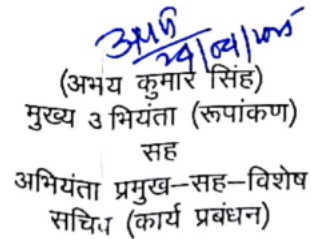 अभय
(अभय कुमार सिंह)
मुख्य अभियंता (रूपांकण)
सह
अभियंता प्रमुख–सह–विशेष
सचिव (कार्य प्रबंधन)